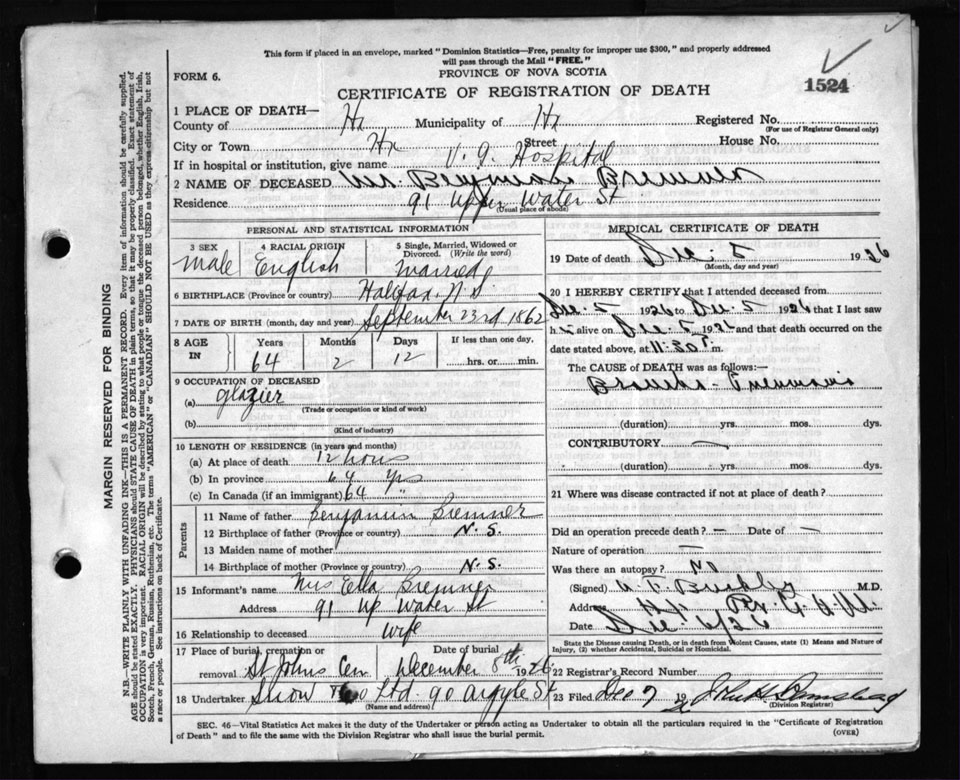 This form if placed in an envelope, marked "Dominion Statistics—Free, penalty for improper use $300," and properly addressed
will pass through the Mail "FREE."
PROVINCE OF NOVA SCOTIA
FORM 6.
CERTIFICATE OF REGISTRATION OF DEATH
1524
1 PLACE OF DEATH—
County of Hx Municipality of Hx Registered No.
(For use of Registrar General only)
City or Town Hx Street House No.
If in hospital or institution, give name V. G. Hospital
2 NAME OF DECEASED Mr. Benjamin Bremner
Residence 91 Upper Water St
(Usual place of abode)
PERSONAL AND STATISTICAL INFORMATION
3 SEX 4 RACIAL ORIGIN 5 Single, Married, Widowed or Divorced. (Write the word)
Male English Married
6 BIRTHPLACE (Province or country) Halifax, N.S.
7 DATE OF BIRTH (month, day and year) September 23rd 1862
8 AGE IN Years Months Days If less than one day.
64 2 12 hrs. or min.
9 OCCUPATION OF DECEASED
(a) glazier
(Trade or occupation or kind of work)
(b)
(Kind of industry)
10 LENGTH OF RESIDENCE (in years and months)
(a) At place of death 12 hours
(b) In province 64 yrs
(c) In Canada (if an immigrant) 64 "
Parents
11 Name of father Benjamin Bremner
12 Birthplace of father (Province or country) N.S.
13 Maiden name of mother
14 Birthplace of mother (Province or country) N.S.
15 Informant's name Mrs Ella Bremner
Address 91 Up Water St
16 Relationship to deceased wife
17 Place of burial, cremation or removal Date of burial
St Johns Cem December 8th 1926
18 Undertaker Snow & Co Ltd. 90 Argyle St
(Name and address)
MEDICAL CERTIFICATE OF DEATH
19 Date of death Dec. 5 1926
(Month, day and year)
20 I HEREBY CERTIFY that I attended deceased from
Dec. 5 1926 to Dec. 5 1926 that I last saw
h alive on Dec. 5 1926 and that death occurred on the
date stated above, at 11:30 P.m.
The CAUSE OF DEATH was as follows:—
Broncho-Pneumonia
(duration) yrs. mos. dys.
CONTRIBUTORY —
(duration) yrs. mos. dys.
21 Where was disease contracted if not at place of death?
Did an operation precede death? — Date of —
Nature of operation —
Was there an autopsy? No
(Signed) M.D.
Address
Date
State the Disease causing Death, or in death from Violent Causes, state (1) Means and Nature of
Injury, (2) whether Accidental, Suicidal or Homicidal.
22 Registrar's Record Number
23 Filed Dec 7 19
(Division Registrar)
SEC. 46—Vital Statistics Act makes it the duty of the Undertaker or person acting as Undertaker to obtain all the particulars required in the "Certificate of Registration
of Death" and to file the same with the Division Registrar who shall issue the burial permit.
(OVER)
MARGIN RESERVED FOR BINDING
N.B.—WRITE PLAINLY WITH UNFADING INK—THIS IS A PERMANENT RECORD. Every item of information should be carefully supplied.
AGE should be stated EXACTLY. PHYSICIANS should STATE CAUSE OF DEATH in plain terms, so that it may be properly classified. Exact statement of
OCCUPATION is very important. RACIAL ORIGIN will be described by stating to what people or tongue the deceased person belonged, whether English, Irish,
Scotch, French, German, Russian, Ruthenian, etc. The terms "AMERICAN" or "CANADIAN" SHOULD NOT BE USED as they express citizenship but not
a race or people. See instructions on back of Certificate.